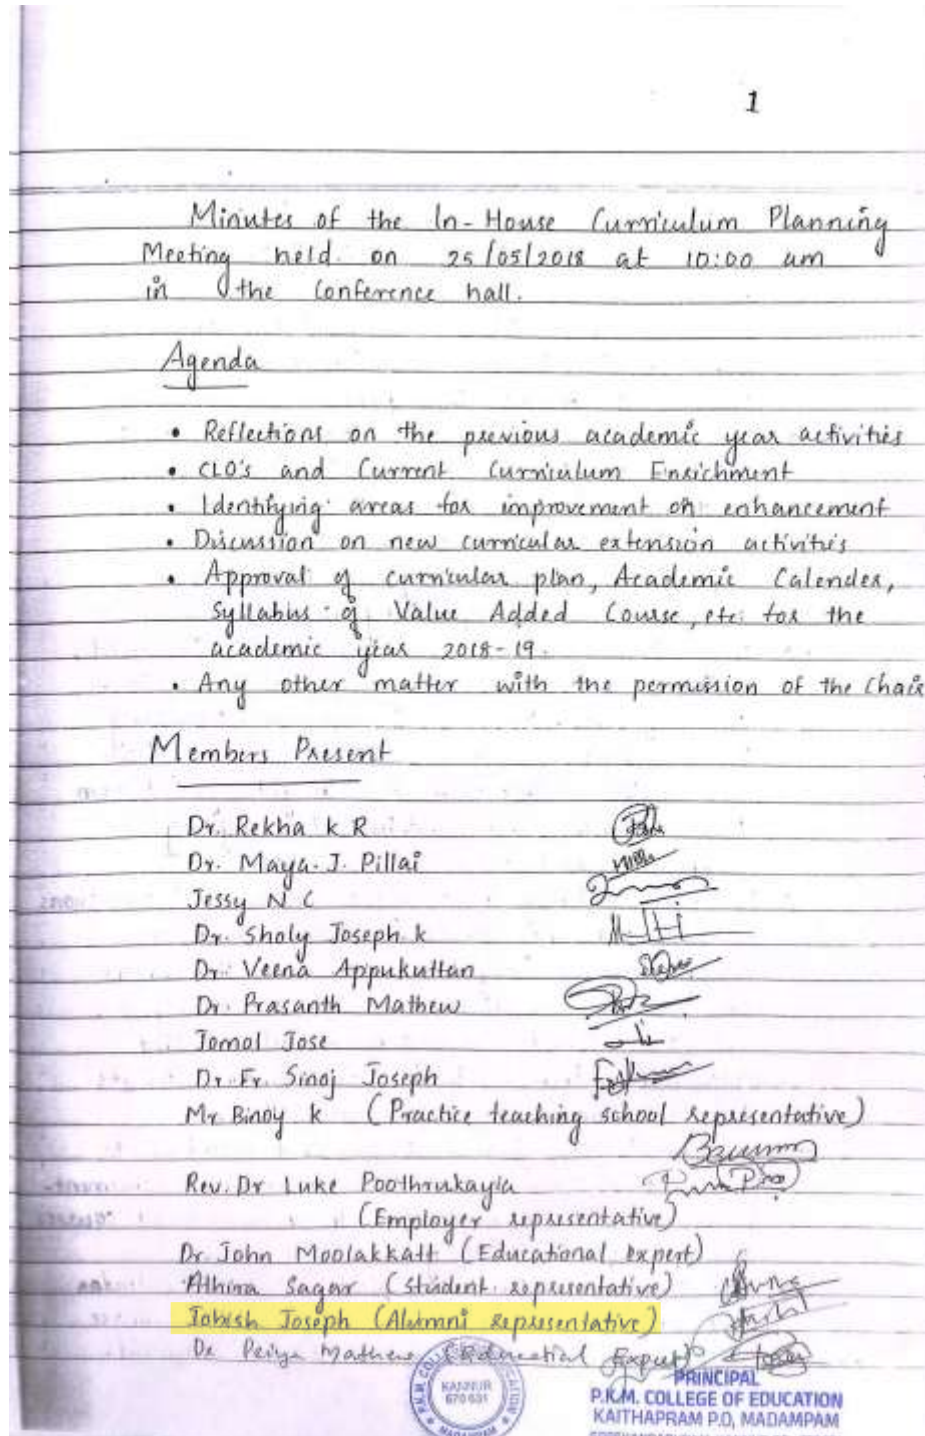 1
Minutes of the In-House Curriculum Planning
Meeting held on 25/05/2018 at 10:00 am
in the Conference hall.
Agenda
• Reflections on the previous academic year activities
• CLO's and Current Curriculum Enrichment
• Identifying areas for improvement or enhancement
• Discussion on new curricular extension activities
• Approval of curricular plan, Academic Calender,
Syllabus of Value Added Course, etc. for the
academic year 2018-19.
• Any other matter with the permission of the Chair
Members Present
Dr. Rekha K R
Dr. Maya J. Pillai
Jessy N C
Dr. Sholy Joseph k
Dr. Veena Appukuttan
Dr. Prasanth Mathew
Jomol Jose
Dr. Fr. Sinoj Joseph
Mr Binoy k (Practice teaching school representative)
Rev. Dr Luke Poothrukayla
(Employer representative)
Dr. John Moolakkatt (Educational expert)
Athira Sagar (Student representative)
Jobish Joseph (Alumni representative)
Dr Priya Mathew (Educational Expert)
P.K.M. COLLEGE
KANNUR
670 631
MADAMPAM
PRINCIPAL
P.K.M. COLLEGE OF EDUCATION
KAITHAPRAM P.O, MADAMPAM